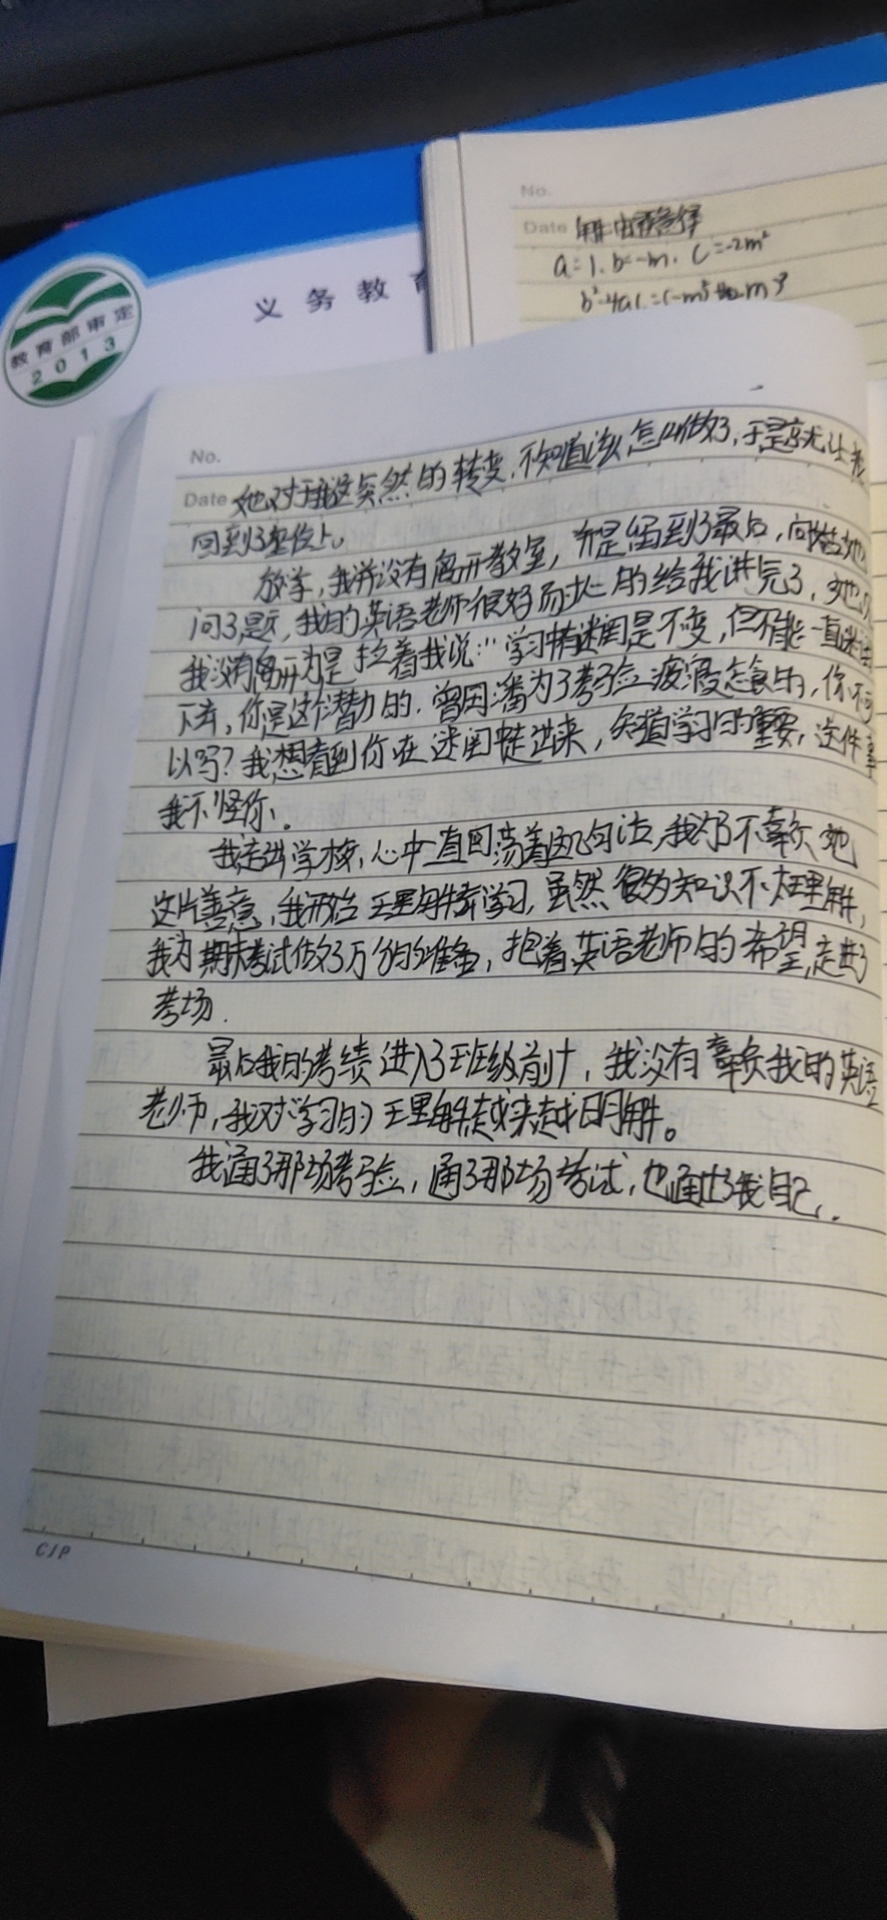 义务教育
教育部审定
2013
No.
Date 解:由题意得
a=1.b=-m.C=-2m²
No.
Date 她对于我这突然的转变,不知道该怎么做了,于是就让我
回到了座位上。
放学,我并没有离开教室,而是留到了最后,向她
问了题,我的英语老师很好而
的给我讲完了,她
我没有离开
是拉着我说:"学习中有迷困是不变,但不能一直迷
下去,你是这个潜力的.曾国潘为了考
疲
怠食
,你不可
以吗?我想看到你在迷困中走出来,知道学习的重要,这件事
我不怪你.
我走出学校,心中一直回荡着这几句话,我为了不辜负她
这片善意,我开始理解着学习,虽然很多知识不太理解,
我为期末考试做了万分的准备,抱着英语老师的希望,走进了
考场.
最后我的考绩进入了班级前十,我没有辜负我的英语
老师,我对学习的理解越来越明解。
我通了那场考验,通了那场考试,也通出了我自己.
CJP